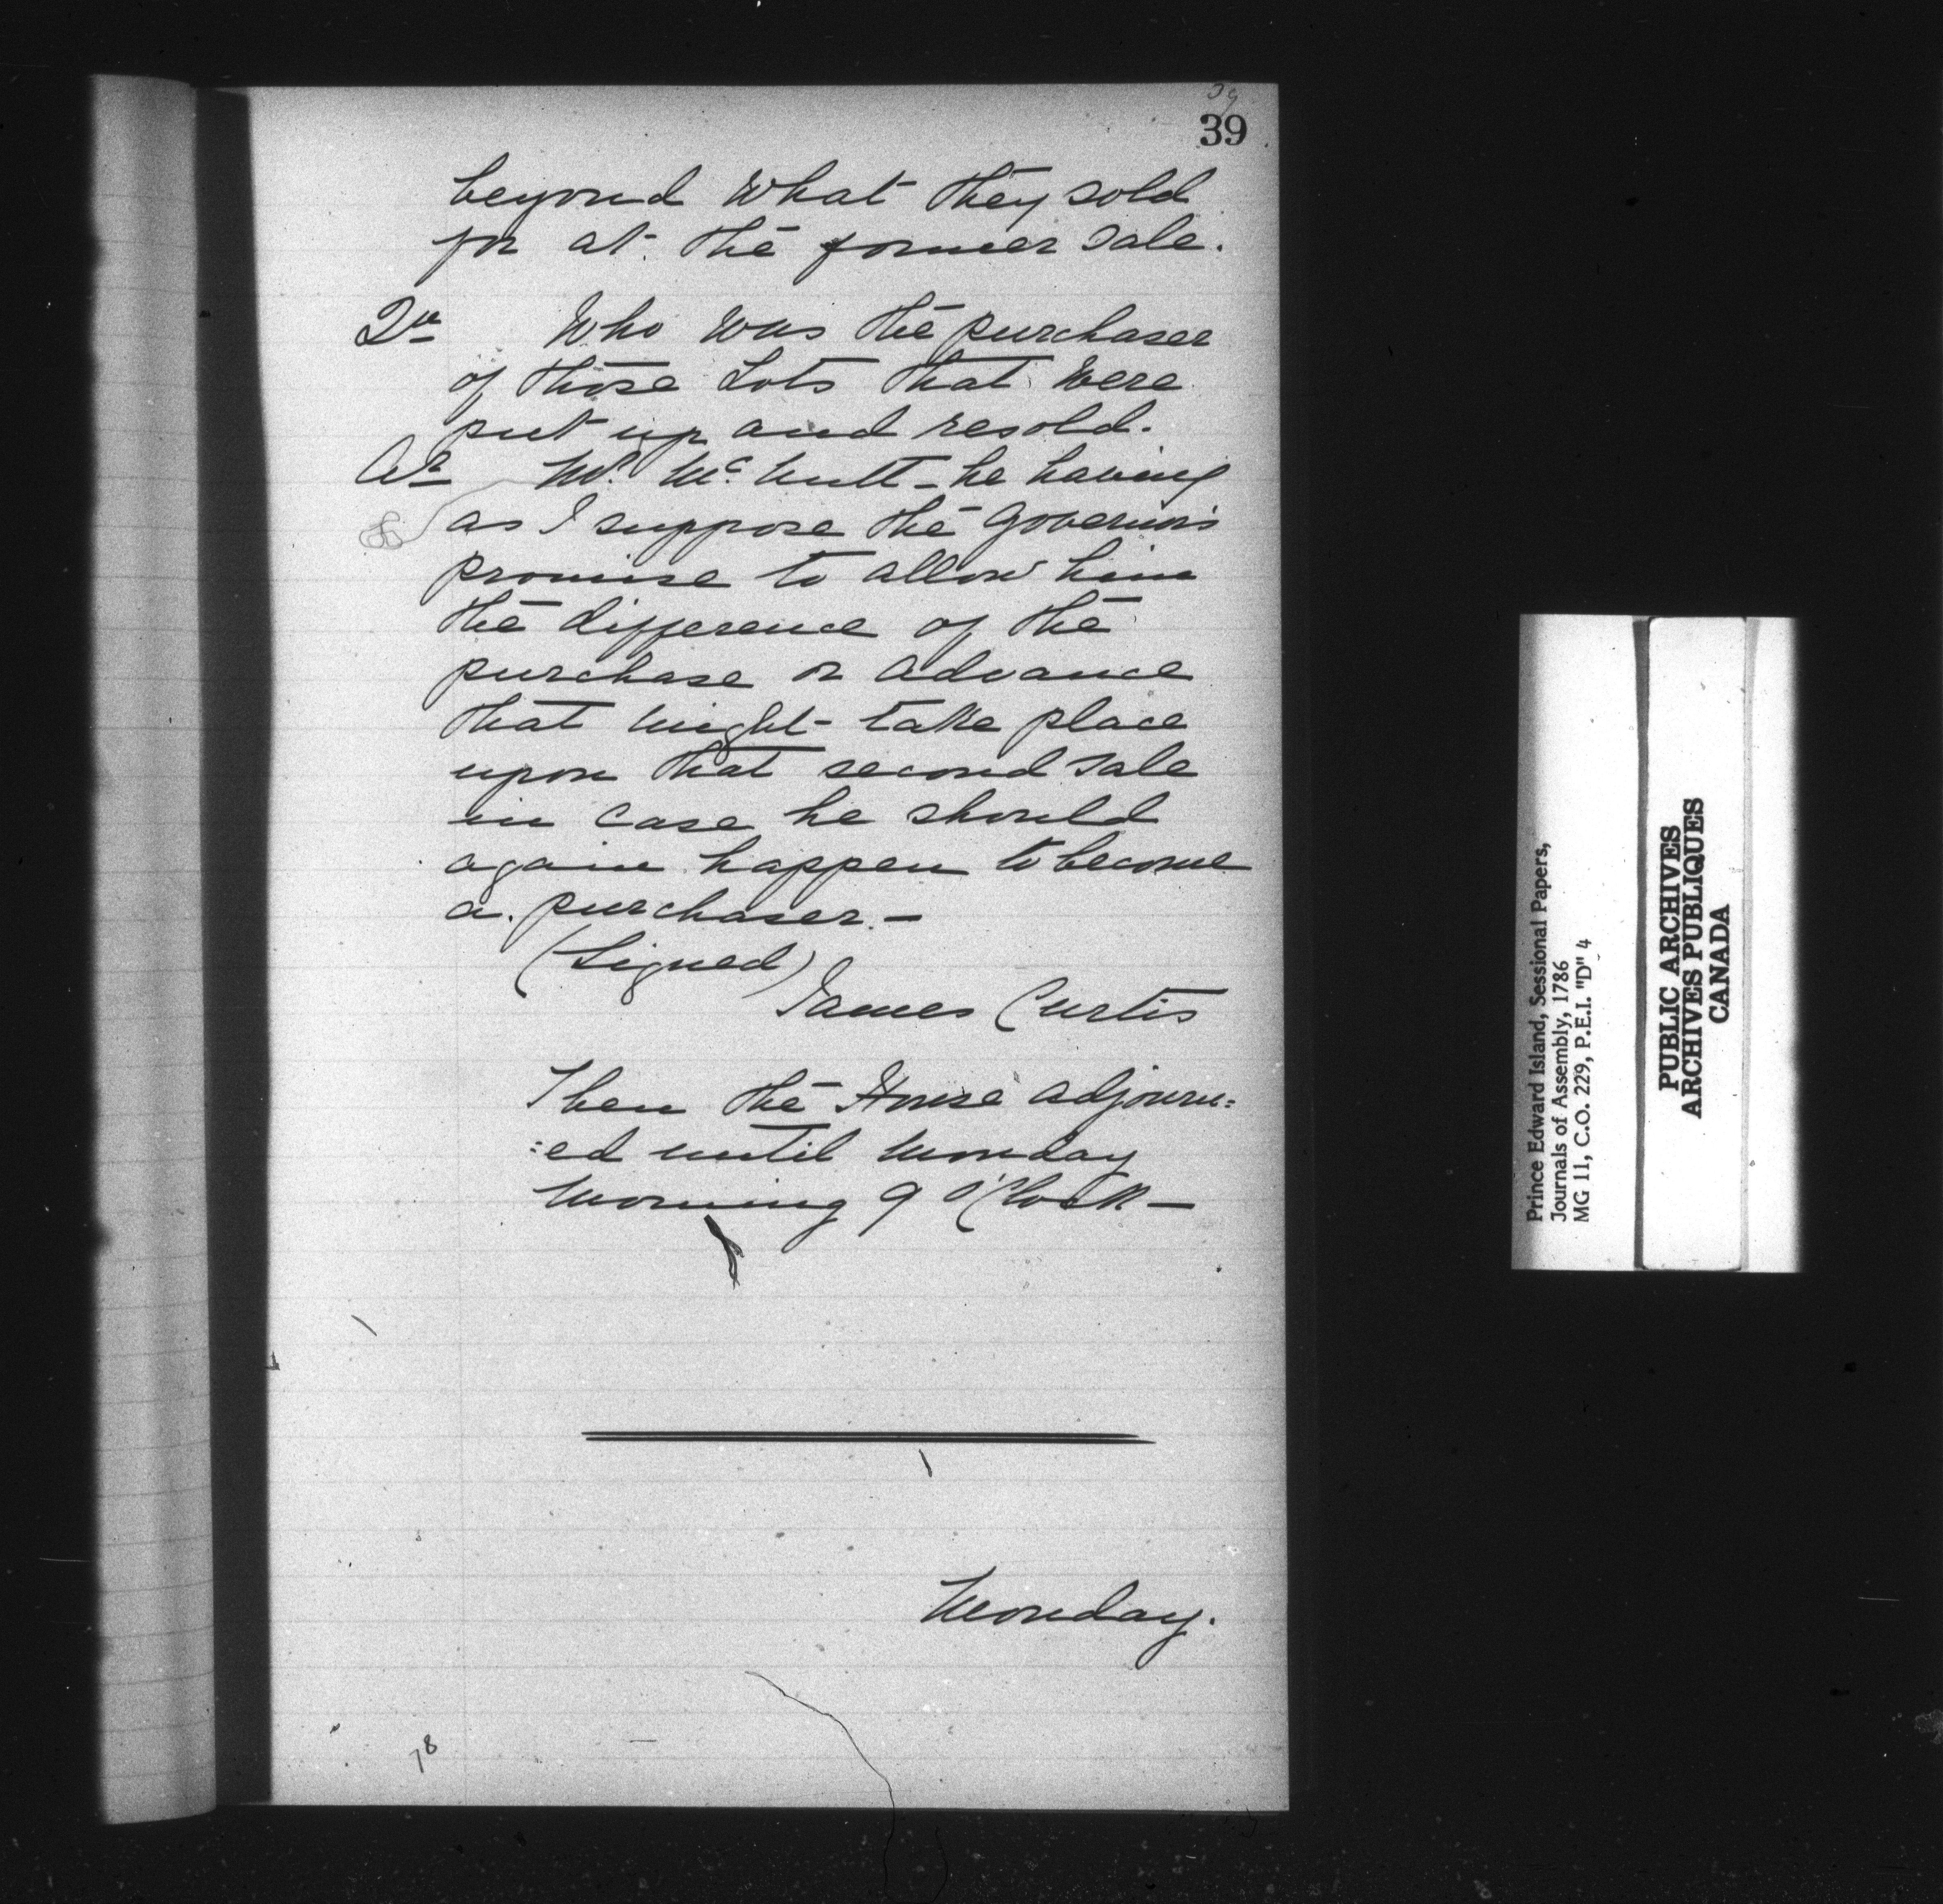 39
39
beyond what they sold
for at the former sale.
Qu Who was the purchaser
of those Lots that were
put up and resold.
Ar Mr. Mc. Nutt - he having
as I suppose the Governor's
promise to allow him
the difference of the
purchase or advance
that might take place
upon that second sale
in case he should
again happen to become
a purchaser. -
(Signed)
James Curtis
Then the House adjourn:
:ed until Monday
Morning 9 O'Clock -
Monday.
78
Prince Edward Island, Sessional Papers,
Journals of Assembly, 1786
MG 11, C.O. 229, P.E.I. "D" 4
PUBLIC ARCHIVES
ARCHIVES PUBLIQUES
CANADA